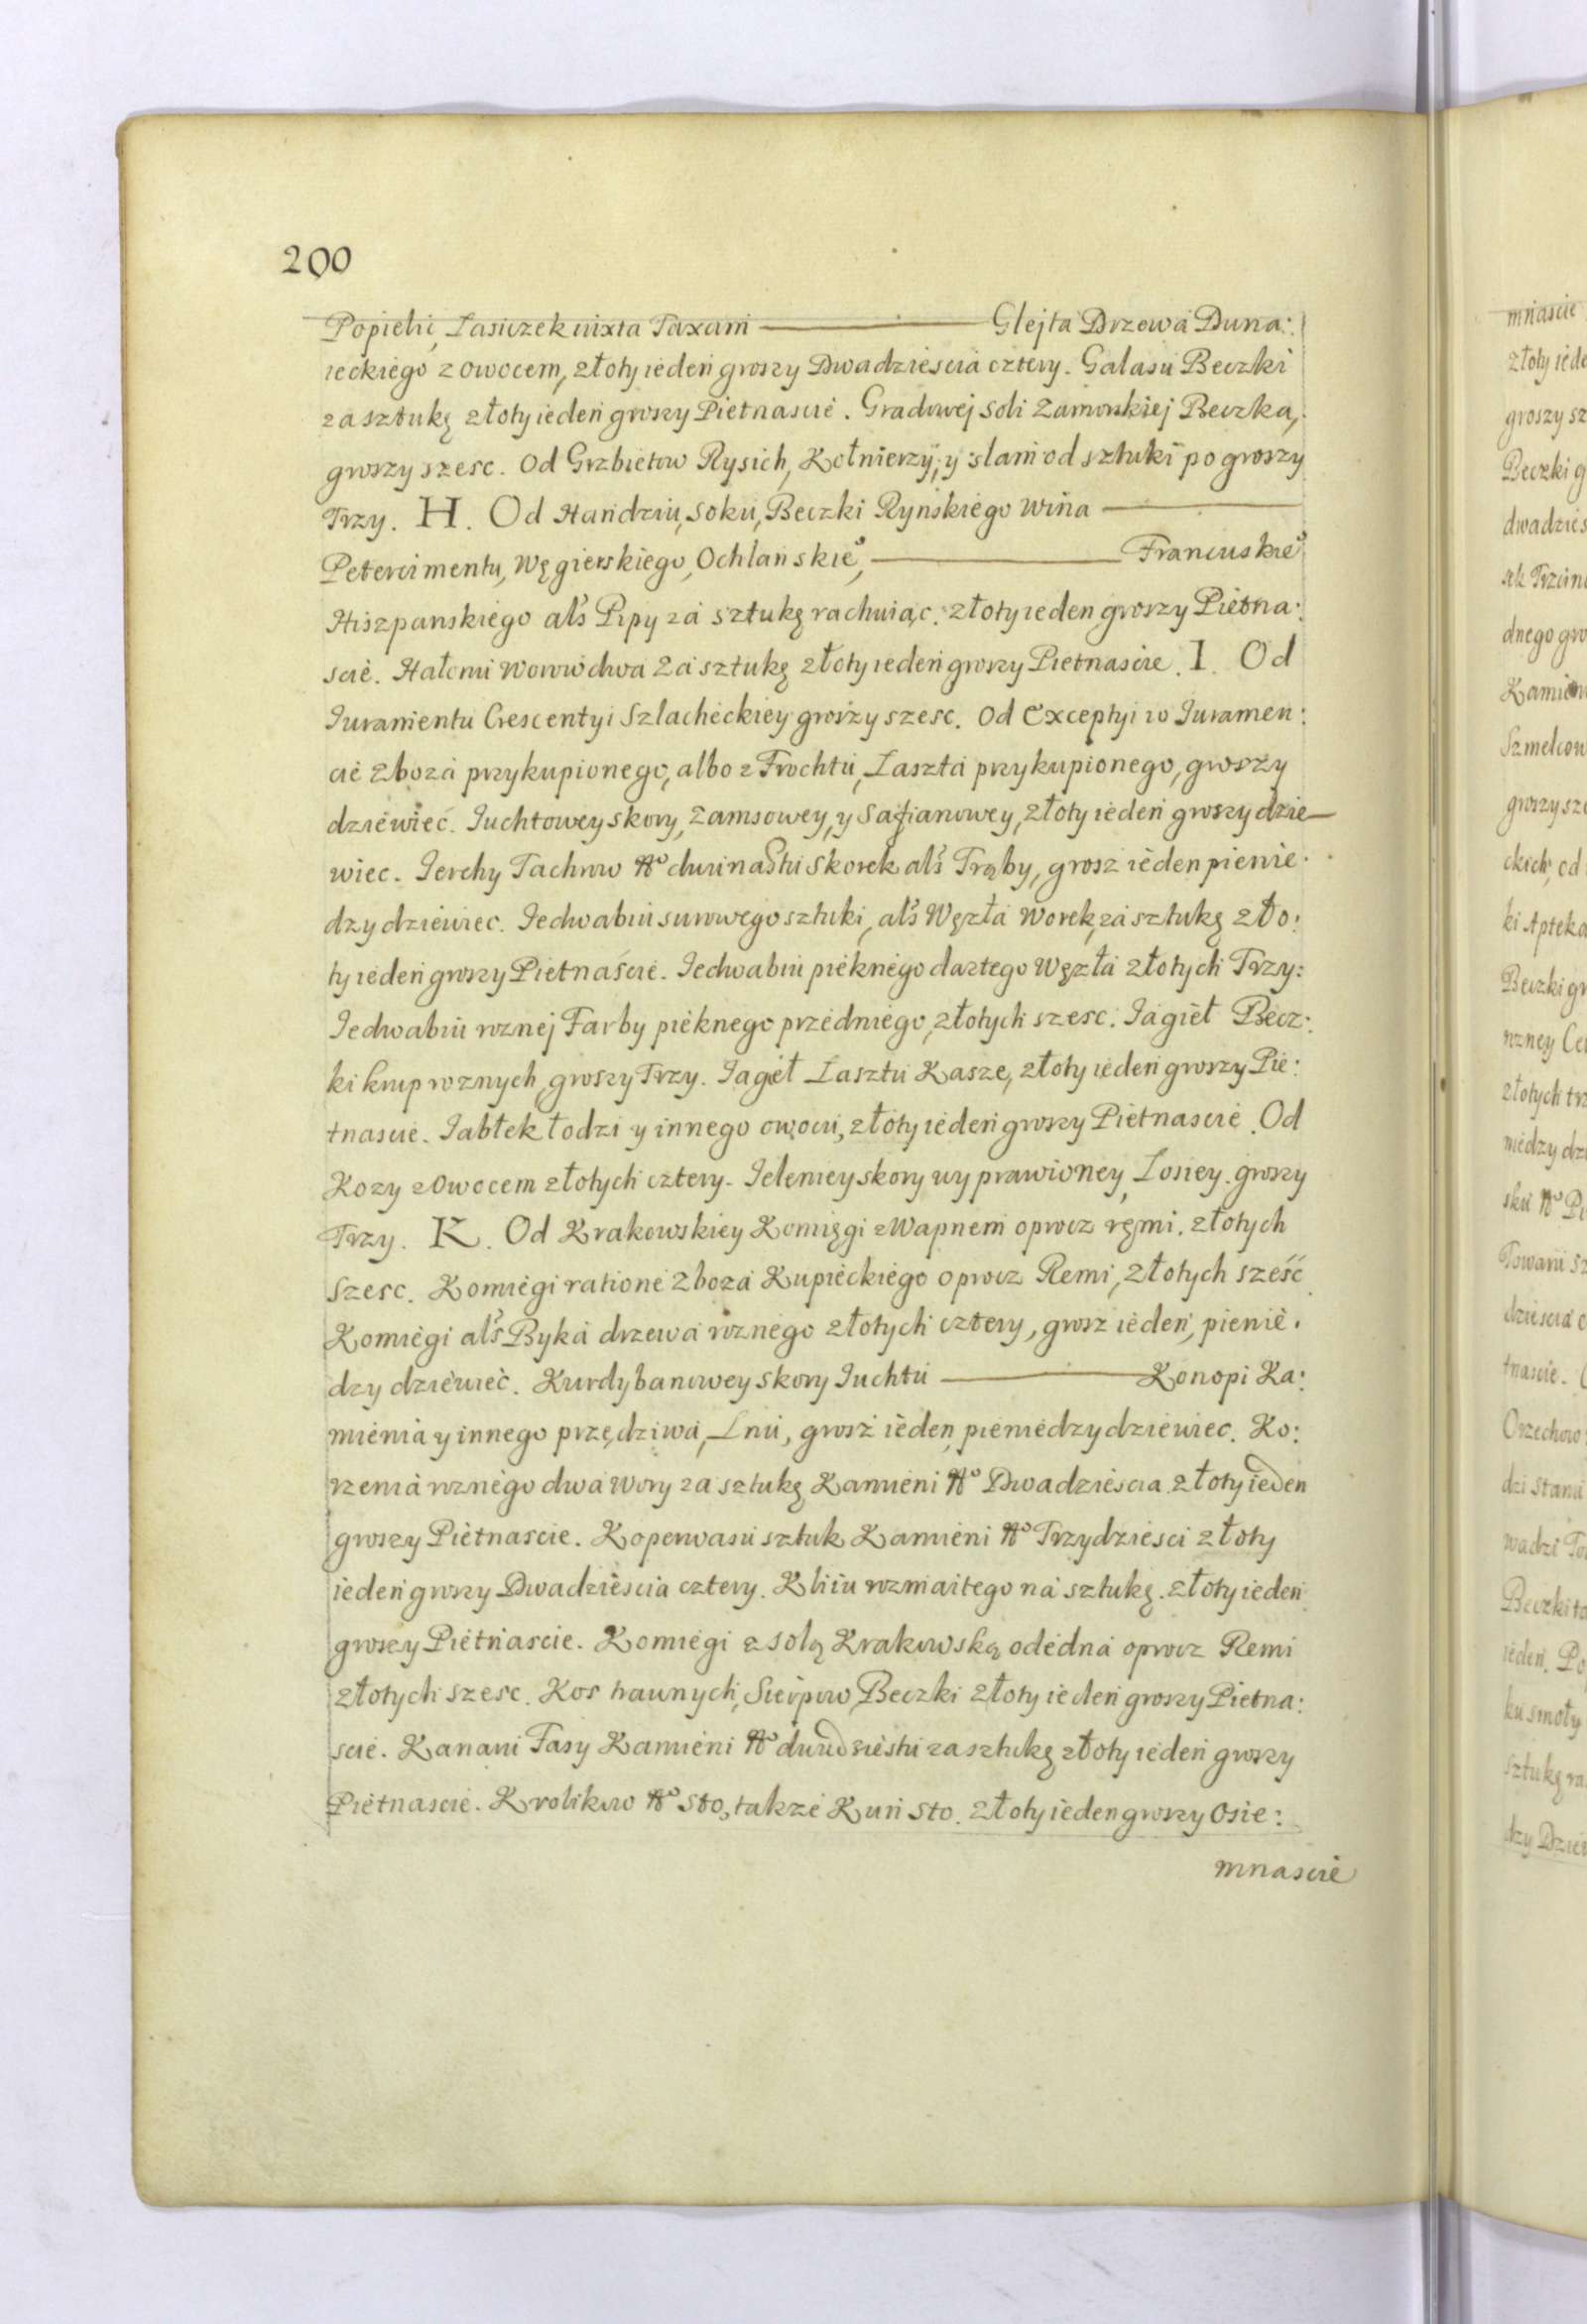 200
Popielic, Lasiczek iuxta Taxam — Glejta Drzewa Duna:
ieckiego z owocem, złoty ieden groszy Dwadziescia cztery. Galasu Beczki
za sztukę złoty ieden groszy Pietnascie. Gradowej soli Zamorskiej Beczka,
groszy szesc. Od Grzbietow Rysich, Kołnierzy, y slam od sztuki po groszy
Trzy. H. Od Handziu, Soku, Beczki Ryńskiego wina —
Petercimentu, Węgierskiego, Ochlanskieo, — Francuskieo
Hiszpanskiego als Pipy za sztukę rachuiąc. złoty ieden groszy Pietna:
scie. Hałunu Worow dwa za sztukę złoty ieden groszy Pietnascie. I. Od
Iuramentu Crescentyi Szlacheckiey groszy szesc. Od Exceptyi w Iuramen:
cie Zboza przykupionego, albo z Frochtu, Laszta przykupionego, groszy
dziewieć. Iuchtowey skory, Zamsowey, y Safianowey, złoty ieden groszy dzie—
wiec. Ierchy Tachrow No dwunastu skorek als Trąby, grosz ieden pienie:
dzy dziewiec. Iedwabiu surowego sztuki, als Węzła Worek, za sztukę zło:
ty ieden groszy Pietnaście. Iedwabiu pieknego dartego Węzła złotych Trzy:
Iedwabiu roznej Farby pieknego przedniego, złotych szesc. Iagieł Becz:
ki krup roznych groszy Trzy. Iagieł Lasztu Kasze, złoty ieden groszy Pie:
tnascie. Iabłek łodzi y innego owocu, złoty ieden groszy Pietnascie. Od
Kozy z Owocem złotych cztery. Ieleniey skory wyprawioney, Losiey. groszy
Trzy. K. Od Krakowskiey Komięgi z Wapnem oprocz ręmi. złotych
szesc. Komiegi ratione Zboza Kupieckiego oprocz Remi, złotych sześć.
Komiegi als Byka drzewa roznego złotych cztery, grosz ieden, pienie:
dzy dziewieć. Kurdybanowey skory Iuchtu — Konopi Ka:
mienia y innego przędziwa, Lnu, grosz ieden pieniedzy dziewiec. Ko:
rzenia roznego dwa wory za sztukę Kamieni No Dwadziescia. złoty ieden
groszy Pietnascie. Koperwasu sztuk Kamieni No Trzydziesci złoty
ieden groszy Dwadziescia cztery. Kliiu rozmaitego na sztukę. złoty ieden
groszy Pietnascie. Komiegi z solą Krakowską odedna oprocz Remi
złotych szesc. Kos trawnych, Sierpow, Beczki złoty ieden groszy Pietna:
scie. Kanaru Fasy Kamieni No dwudziestu za sztukę złoty ieden groszy
Pietnascie. Krolikow No Sto, takze Kun sto. złoty ieden groszy Osie:
mnascie